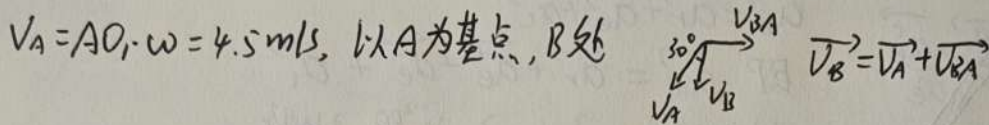 V_A = AO₁·ω = 4.5 m/s, 以A为基点, B处 30° V_BA V_A V_B \overrightarrow{V_B} = \overrightarrow{V_A} + \overrightarrow{V_{BA}}